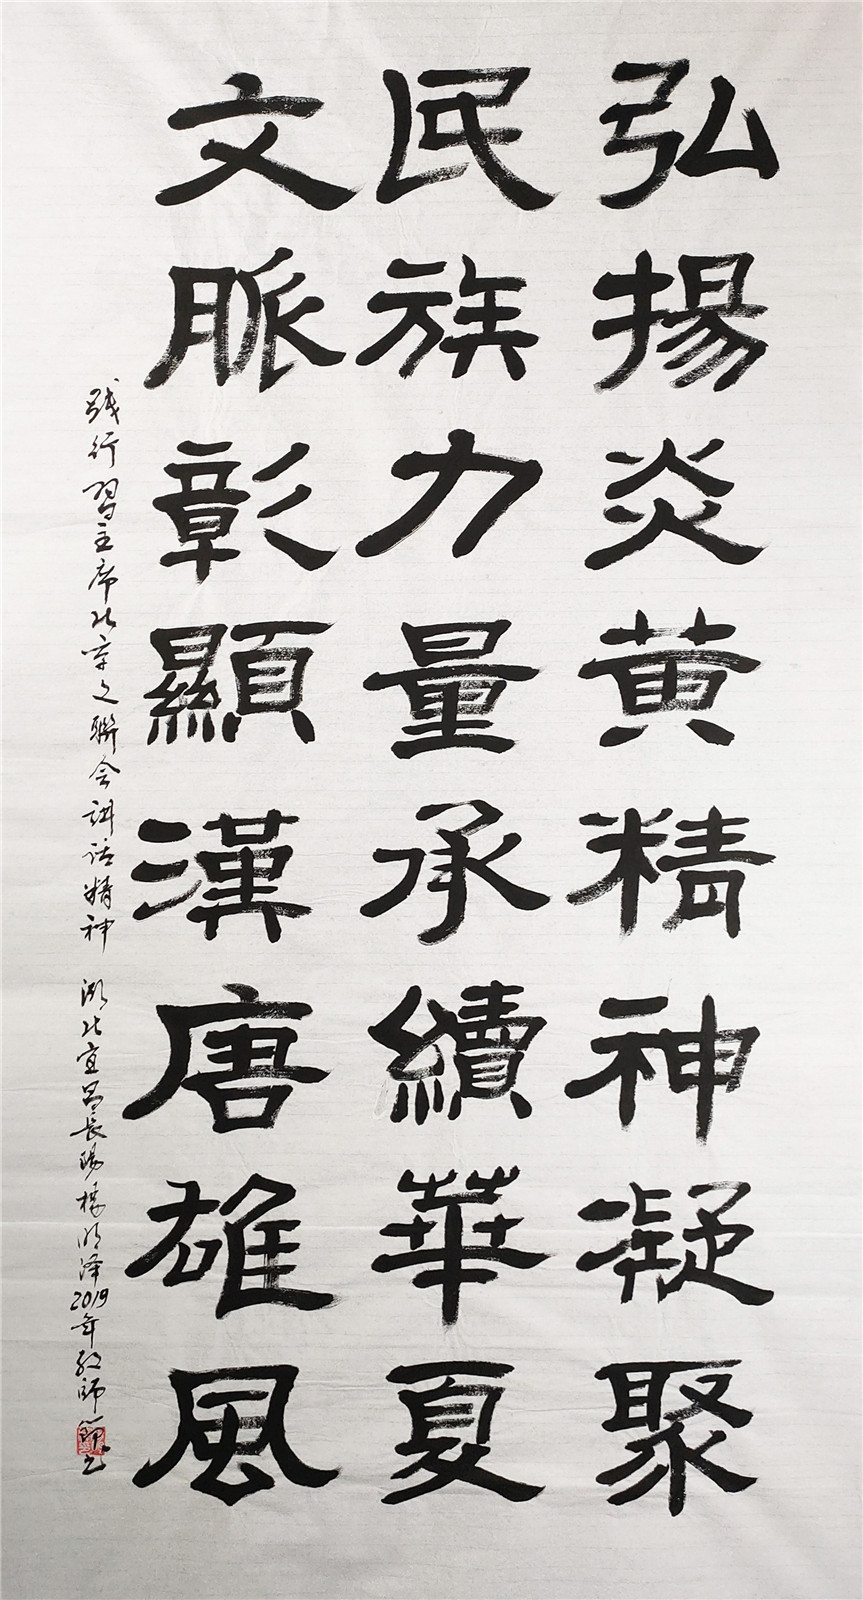 弘揚炎黄精神凝聚
民族力量承續華夏
文脈彰顯漢唐雄風
践行習主席北京文聯会講话精神 湖北宜昌長陽樓明泽2019年教師節书